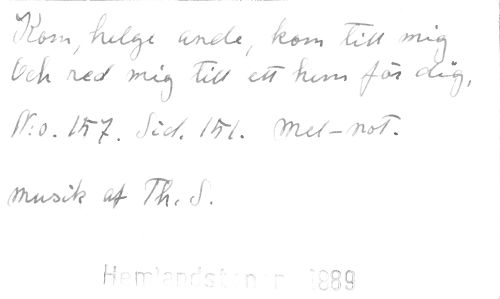 Kom, helge ande, kom till mig
Och red mig till ett hem för dig,
N:o. 157. Sid. 151. mel-not.
musik af Th. S.
Hemlandstoner 1889